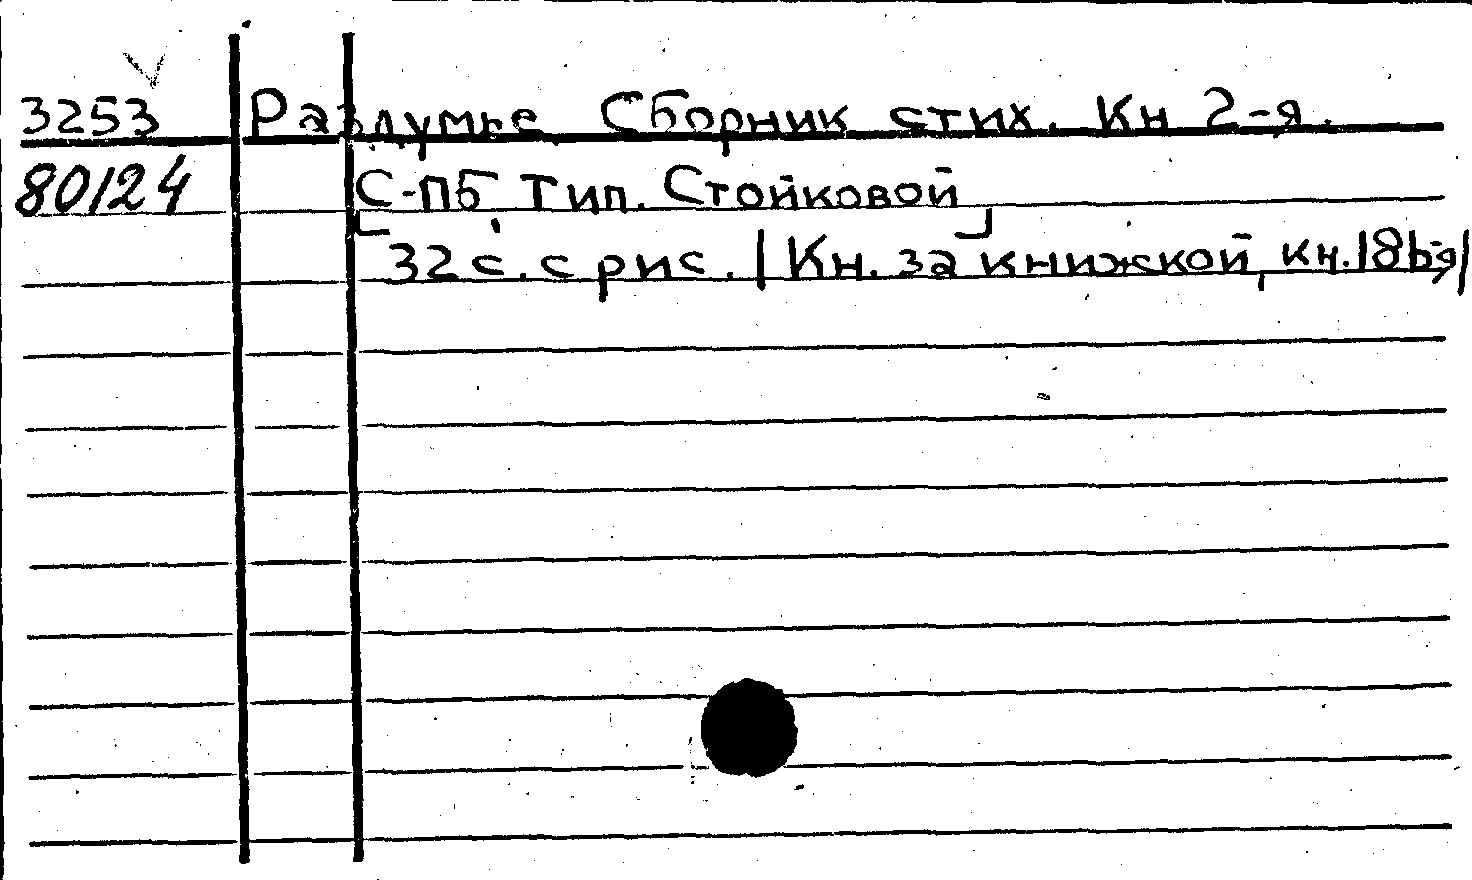 3253 Раздумье Сборник стих. Кн 2-я.
80124 С-ПБ, Тип. Стойковой
32 с. с рис. | Кн. за книжкой, кн. 186-я|